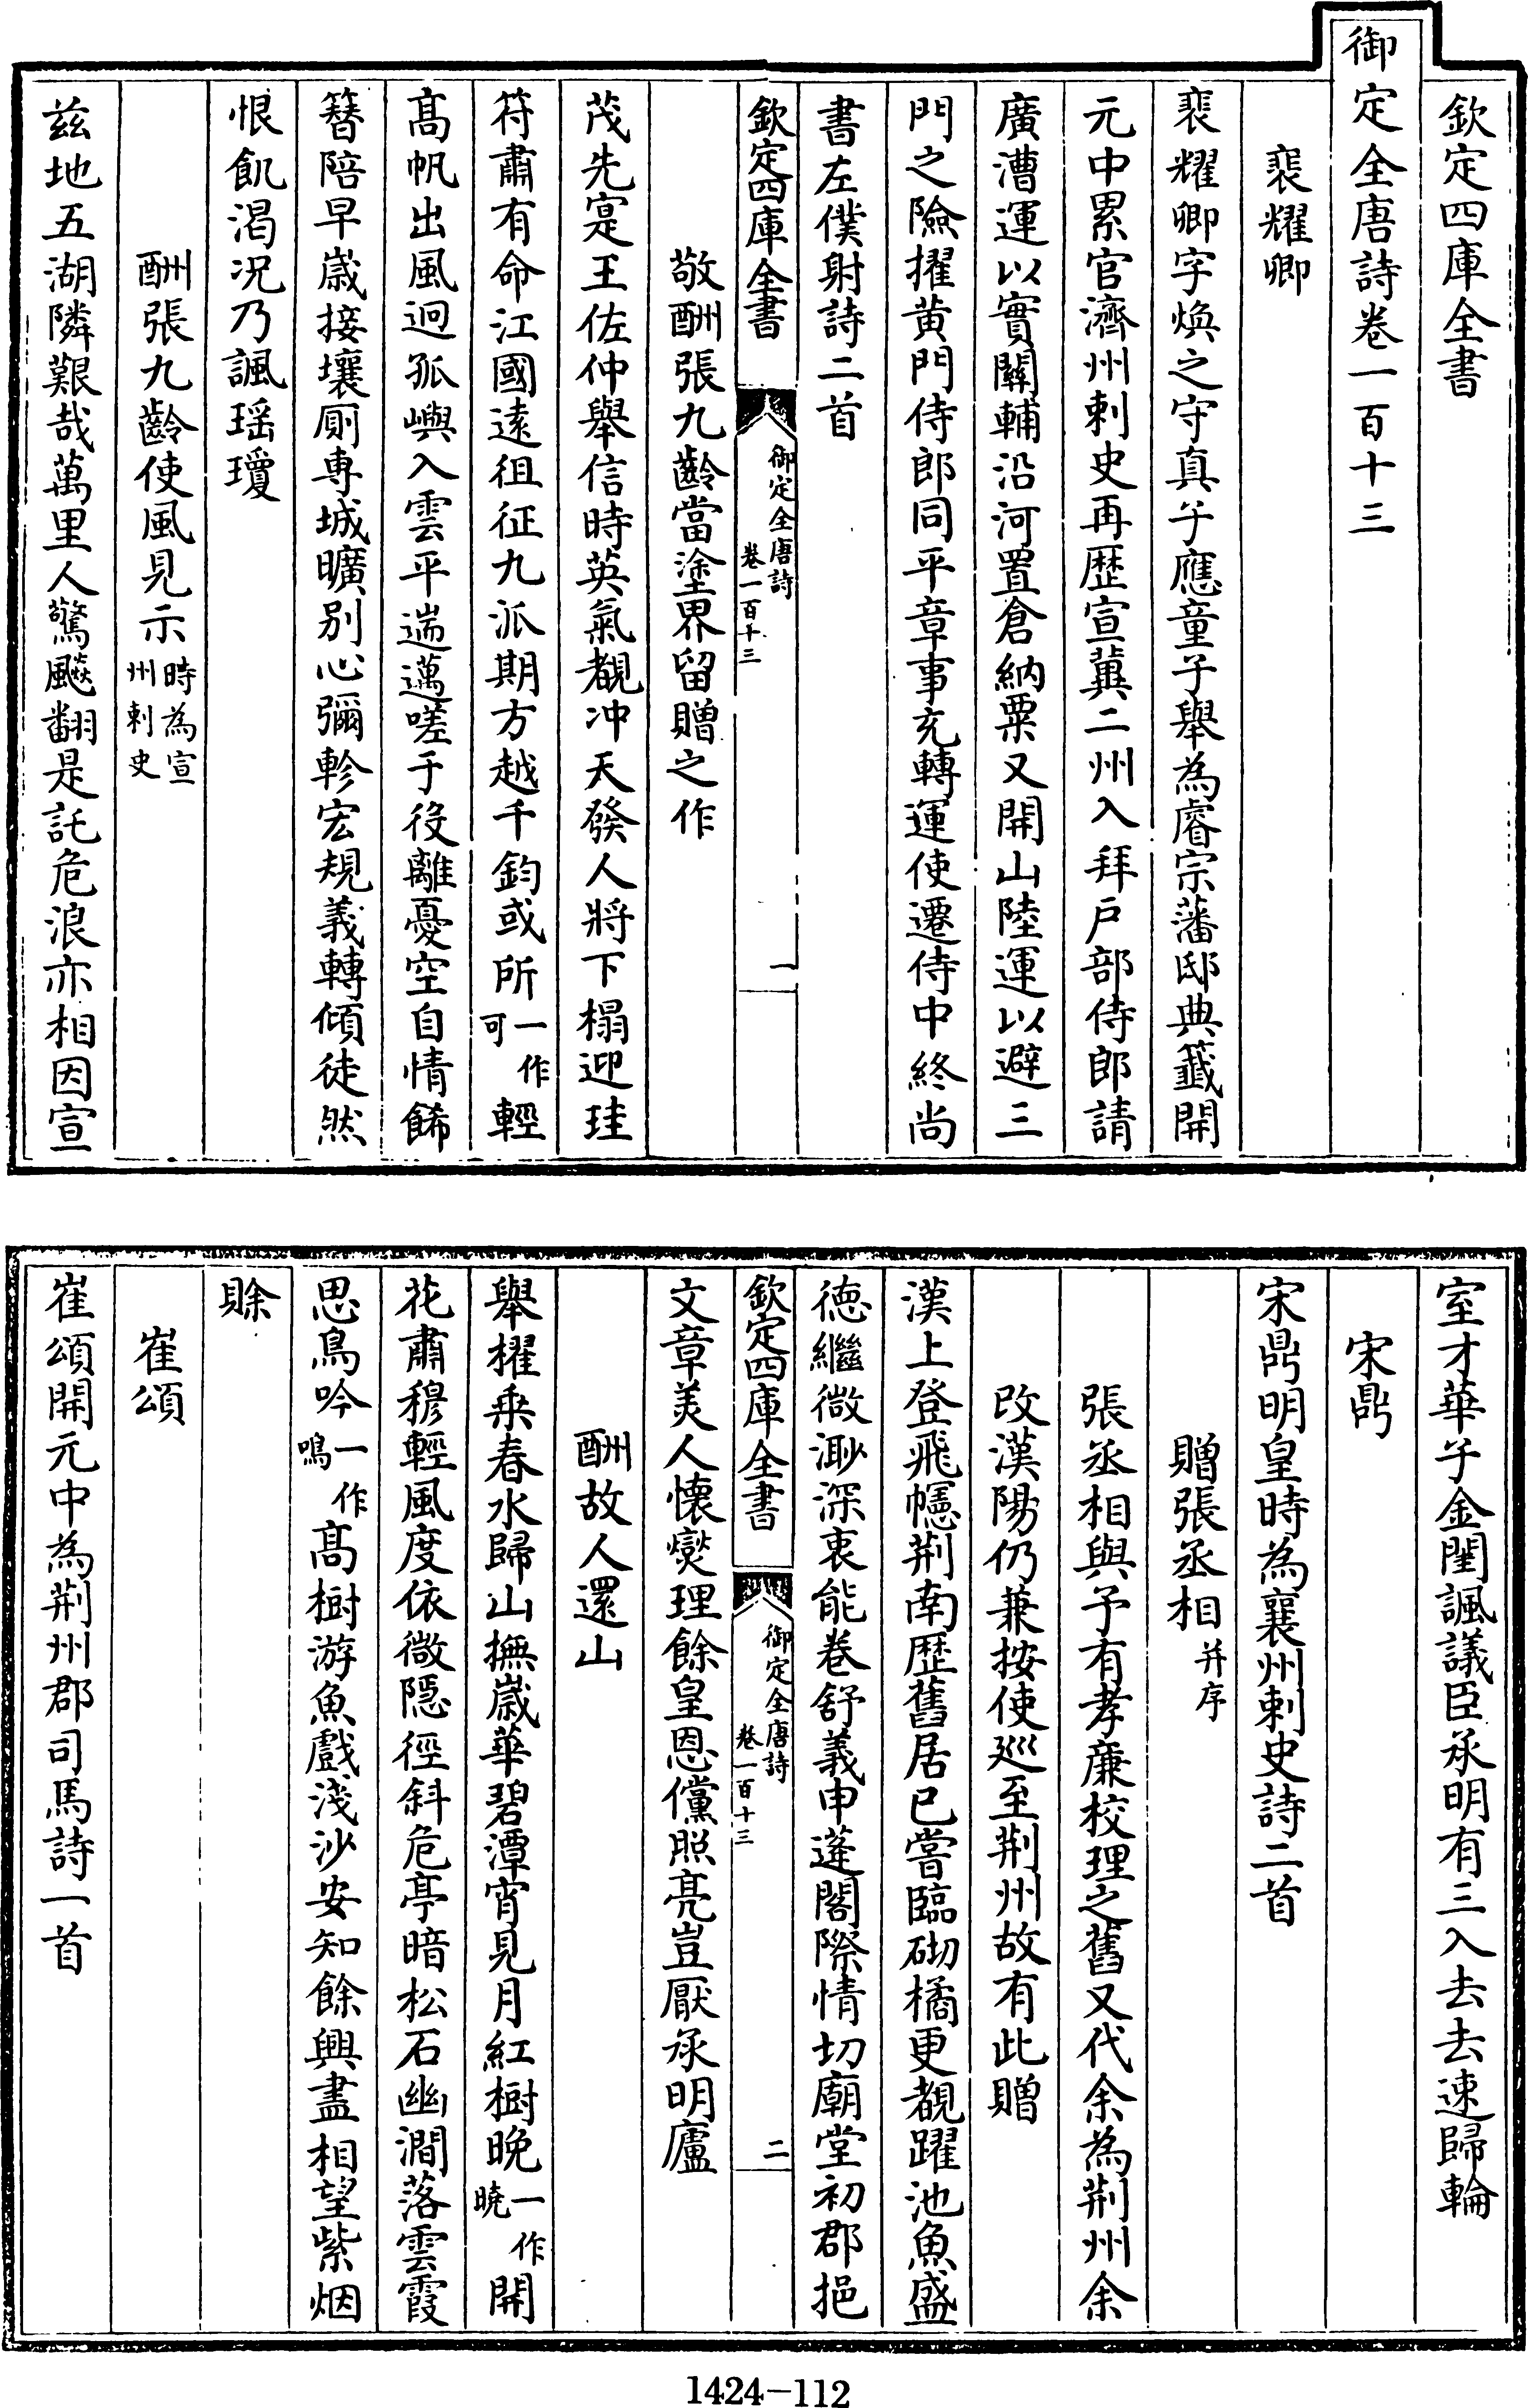 欽定四庫全書
御定全唐詩卷一百十三
裴耀卿
裴耀卿字煥之守真子應童子舉為睿宗藩邸典籤開
元中累官濟州刺史再歴宣冀二州入拜戶部侍郎請
廣漕運以實關輔沿河置倉納粟又開山陸運以避三
門之險擢黄門侍郎同平章事充轉運使遷侍中終尚
書左僕射詩二首
欽定四庫全書
御定全唐詩
卷一百十三
一
敬酬張九齡當塗界留贈之作
茂先寔王佐仲舉信時英氣覩冲天發人將下榻迎珪
符肅有命江國遠徂征九派期方越千鈞或所一作可輕
髙帆出風迥孤嶼入雲平遄邁嗟于役離憂空自情餙
簪陪早歲接壤厠専城曠别心彌軫宏規義轉傾徒然
恨飢渴况乃諷瑶瓊
酬張九齡使風見示時為宣州刺史
兹地五湖隣艱哉萬里人驚飈翻是託危浪亦相因宣
室才華子金閨諷議臣承明有三入去去速歸輪
宋鼎
宋鼎明皇時為襄州刺史詩二首
贈張丞相并序
張丞相與予有孝廉校理之舊又代余為荆州余
改漢陽仍兼按使廵至荆州故有此贈
漢上登飛幰荆南歴舊居已嘗臨砌橘更覩躍池魚盛
徳繼微渺深衷能卷舒義申蓬閣際情切廟堂初郡挹
欽定四庫全書
御定全唐詩
卷一百十三
二
文章美人懐爕理餘皇恩儻照亮豈厭承明廬
酬故人還山
舉櫂乘春水歸山撫歲華碧潭宵見月紅樹晩一作曉開
花肅穆輕風度依微隠徑斜危亭暗松石幽澗落雲霞
思鳥吟一作鳴髙樹游魚戲淺沙安知餘興盡相望紫烟
賒
崔頌
崔頌開元中為荆州郡司馬詩一首
1424-112